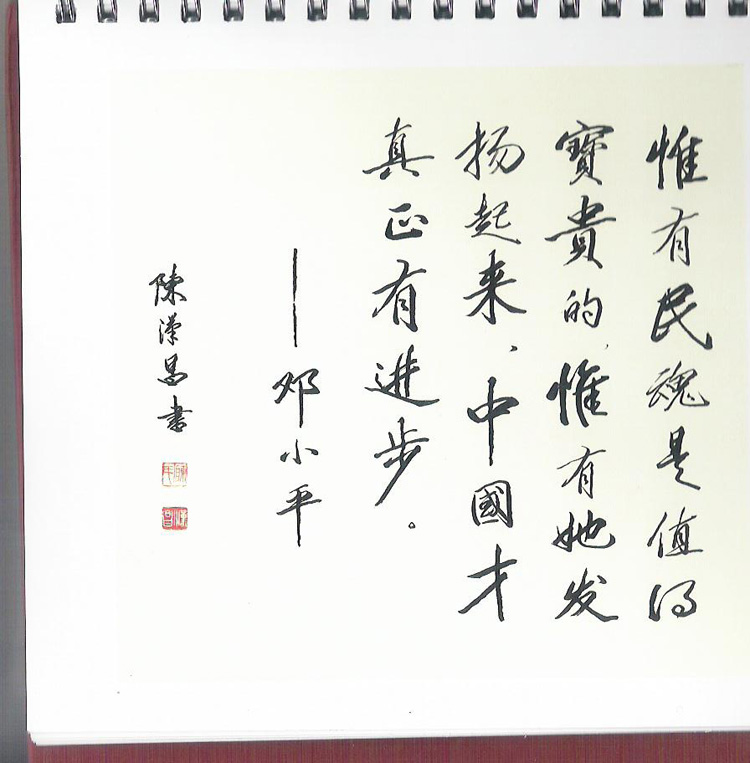 惟有民魂是值得
寶貴的,惟有她发
扬起来、中國才
真正有进步。
——邓小平
陳漢昌書